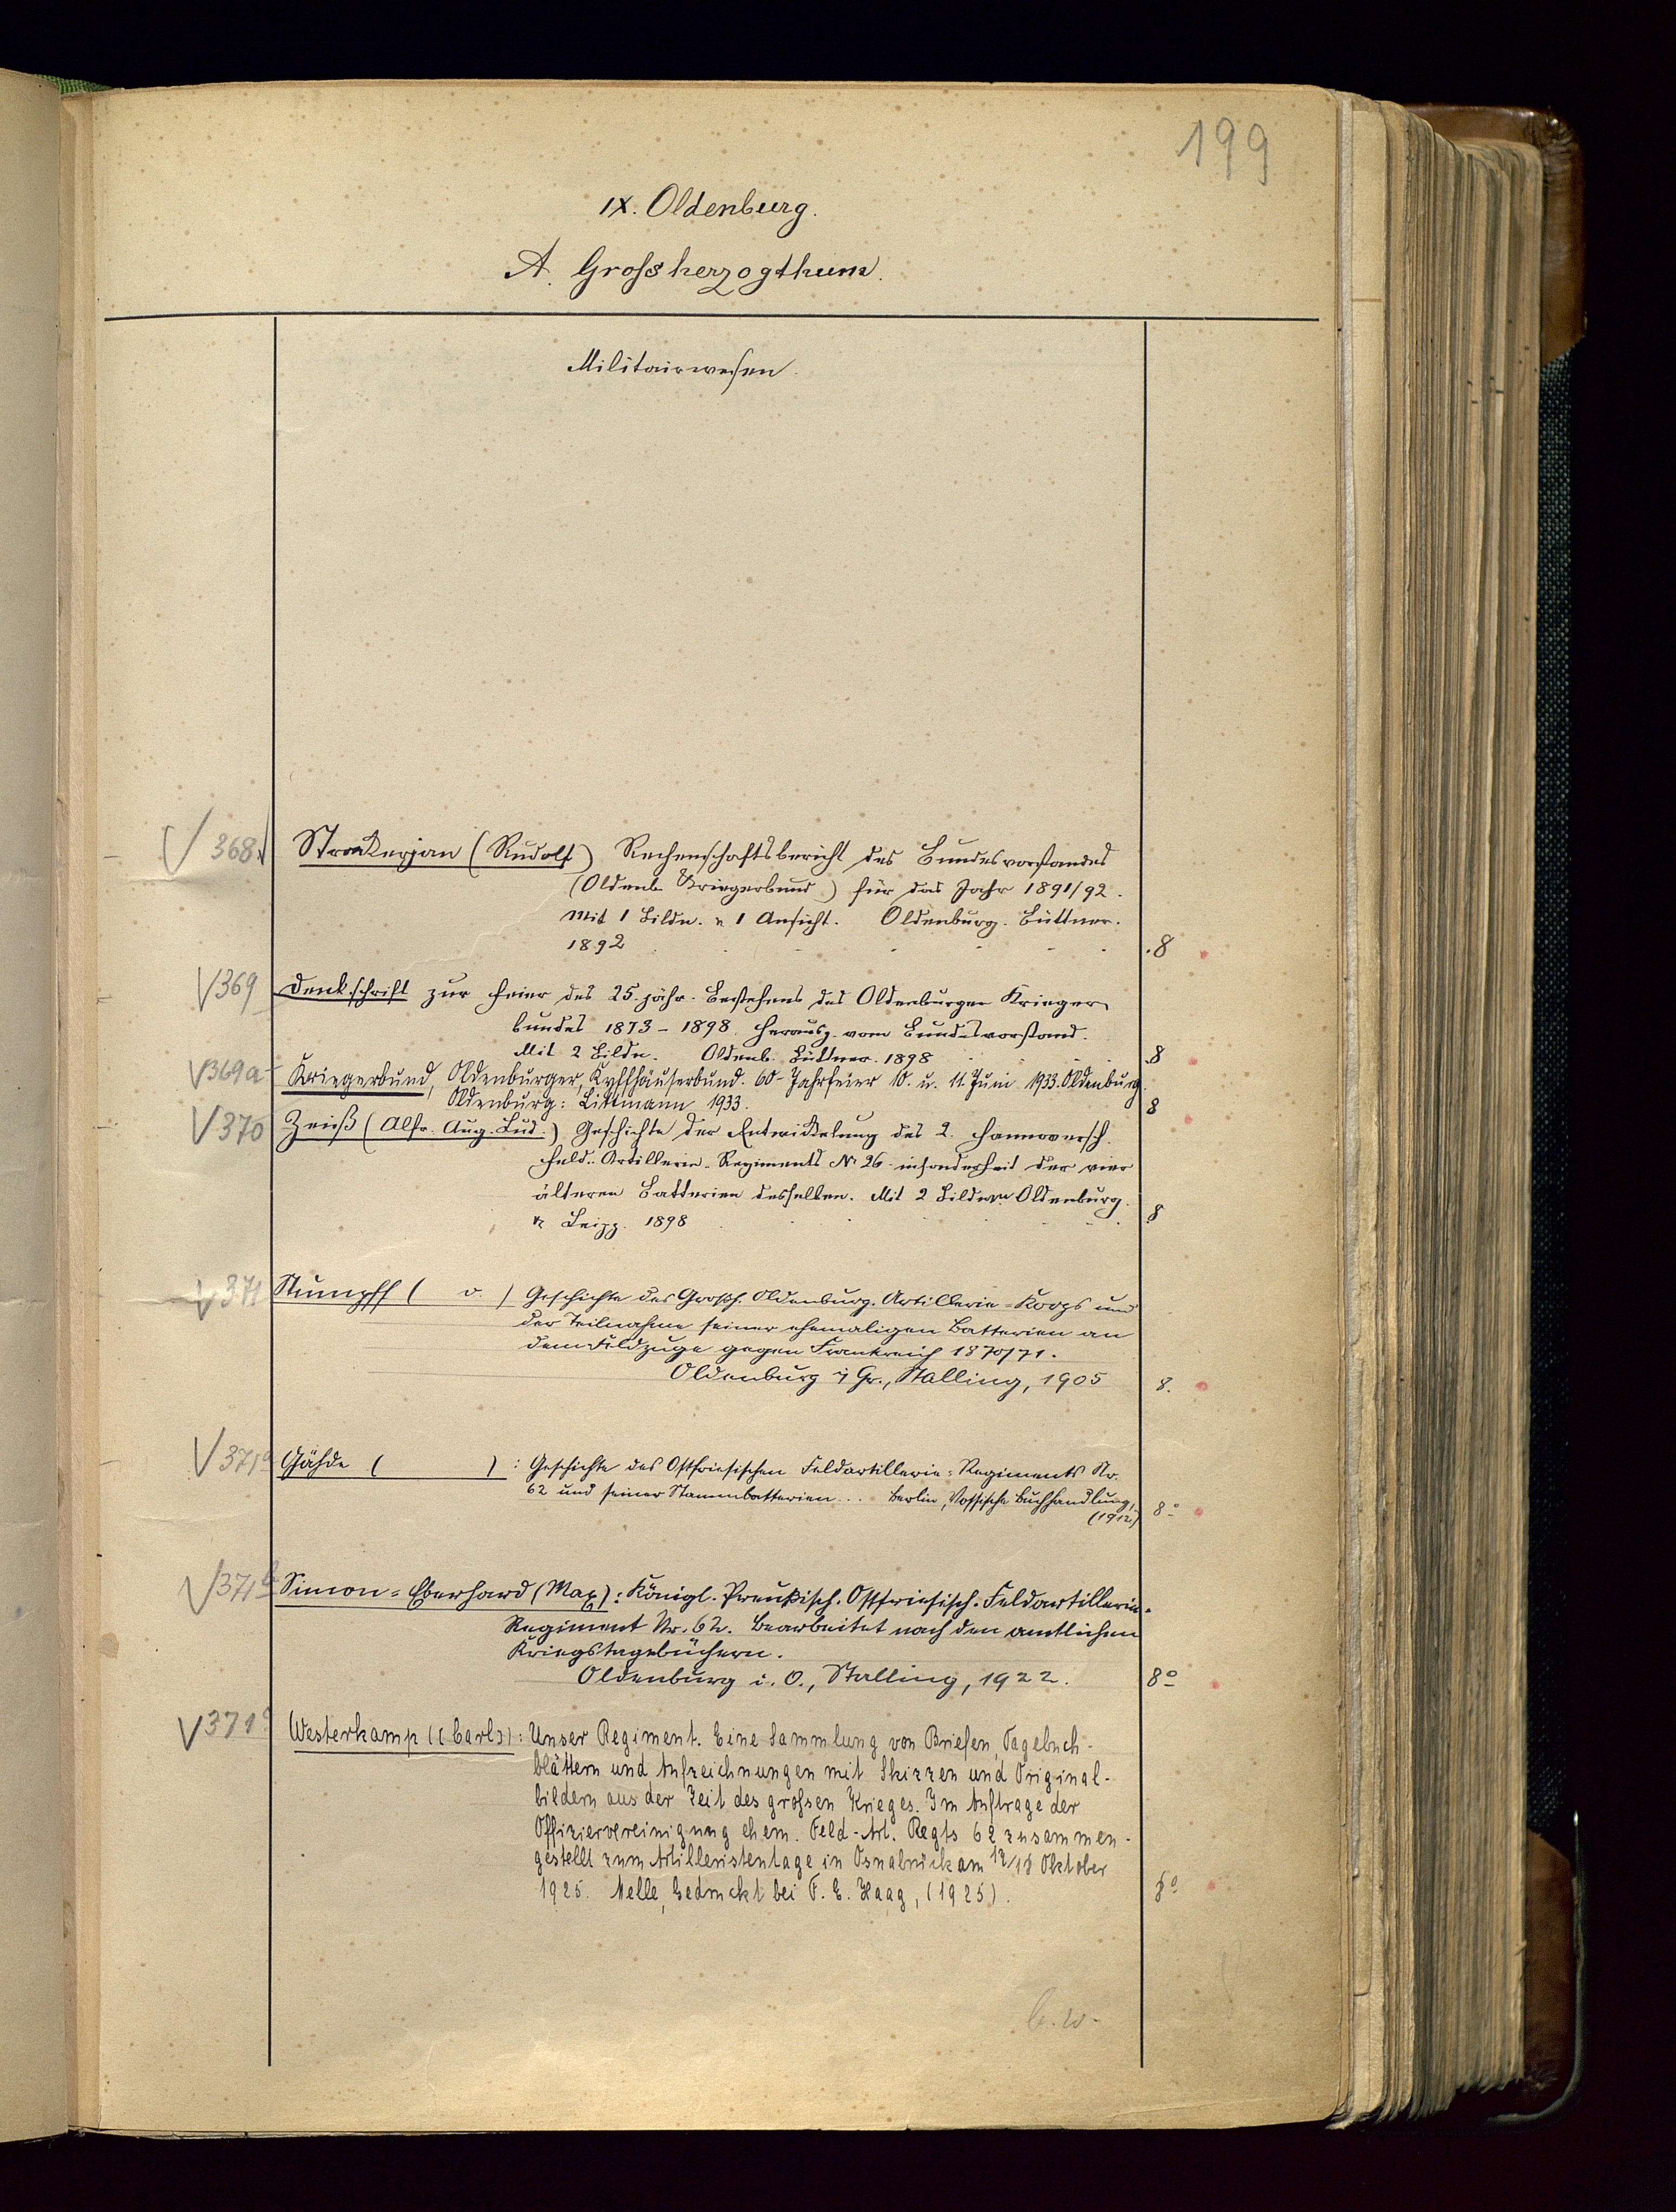 199
IX. Oldenburg.
A. Grossherzogthum.
Militairwesen.
V 368. Strackerjan (Rudolf) Rechenschaftsbericht des Bundesvorstandes
(Oldenb. Kriegerbund) für das Jahr 1891/92.
Mit 1 Bildn. u. 1 Ansicht. Oldenburg. Büttner.
1892 8
V 369 Denkschrift zur Feier des 25. jähr. Bestehens des Oldenburger Krieger
bundes 1873-1898. Herausg. vom Bundesvorstand.
Mit 2 Bildn. Oldenb. Büttner. 1898 8
V 369a Kriegerbund, Oldenburger, Kyffhäuserbund. 60-Jahrfeier 10. u. 11. Juni 1933. Oldenburg.
Oldenburg: Littmann 1933. 8
V 370 Zeiß (Alfr. Aug. Lud.) Geschichte der Entwickelung des 2. Hannoversch.
Feld-Artillerie-Regiments Nr 26 insonderheit der vier
älteren Batterien desselben. Mit 2 Bildern Oldenburg.
u. Leipz. 1898 8
V 371 Stumpff ( v. ) Geschichte des Großh. Oldenburg. Artillerie-Korps und
der Teilnahme seiner ehemaligen Batterien an
dem Feldzuge gegen Frankreich 1870/71.
Oldenburg i Gr., Stalling, 1905 8.
V 371a Gähde ( ): Geschichte des Ostfriesischen Feldartillerie-Regiments Nr.
62 und seiner Stammbatterien... Berlin, Vossische Buchhandlung,
(1912.) 8°
V 371b Simon-Eberhard (Max): Königl. Preußisch. Ostfriesisch. Feldartillerie-
Regiment Nr. 62. Bearbeitet nach den amtlichen
Kriegstagebüchern.
Oldenburg i. O., Stalling, 1922. 8°
V 371c Westerkamp ([Carl]): Unser Regiment. Eine Sammlung von Briefen, Tagebuch-
blättern und Aufzeichnungen mit Skizzen und Original-
bildern aus der Zeit des grossen Krieges. Im Auftrage der
Offiziervereinigung ehem. Feld-Art. Regts 62 zusammen-
gestellt zum Artilleristentage in Osnabrück am 17/18 Oktober
1925. Melle, Gedruckt bei F. E. Haag, (1925). 8°
b.w.